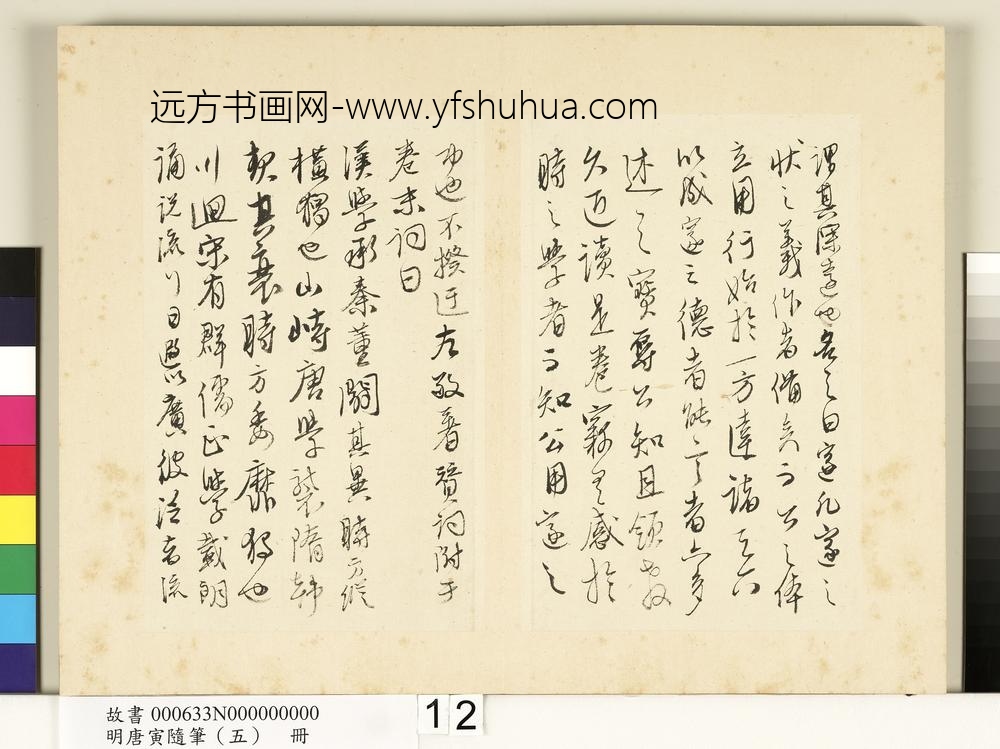 远方书画网-www.yfshuhua.com
謂其深遠也名之曰邃凡邃之
狀之義作者備矣而公之体
立用行始於一方達諸天下
以成邃之德者能言者亦多
述之寶辱公知且領教
久近讀是卷竊有感於
時之學者而知公用邃之
功也不揆迂左敬著贊詞附于
卷末詞曰
漢學承秦董闢其異時方縱
橫獨也山峙唐學襲隋韓
契其衰時方委靡獨也
川迴宋有群儒正學載明
誦說流行日過以廣彼泛者流
故書 000633N000000000
明唐寅隨筆（五） 冊
12